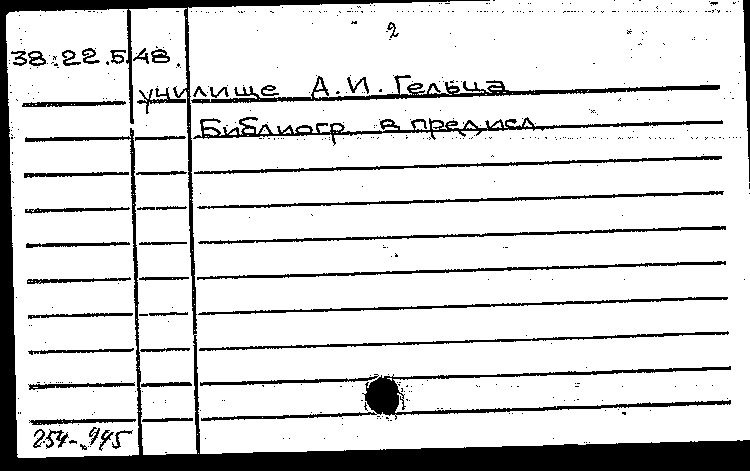 2
38.22.5.48.
училище А.И. Гельца
Библиогр. в предисл.
254-945